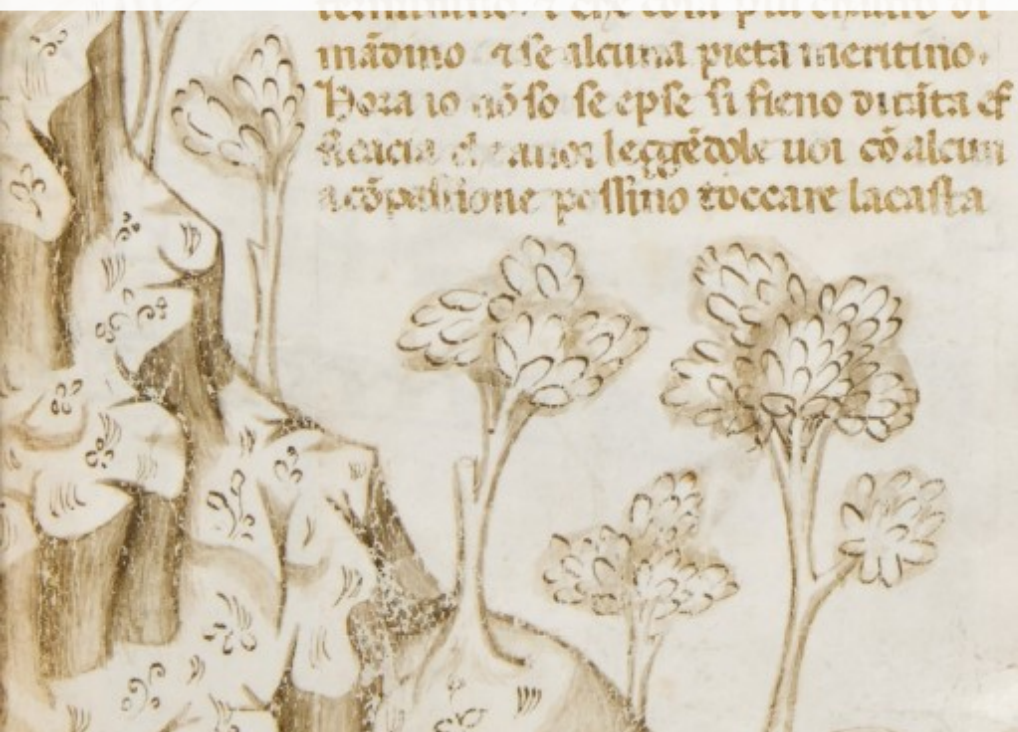 che cosa piu
mãdino ⁊ se alcuna pieta meritino.
Hora io nõ so se epse si sieno di tãta ef
ficacia che leggẽdole uoi cõ alcun
a cõpassione possino toccare la casta